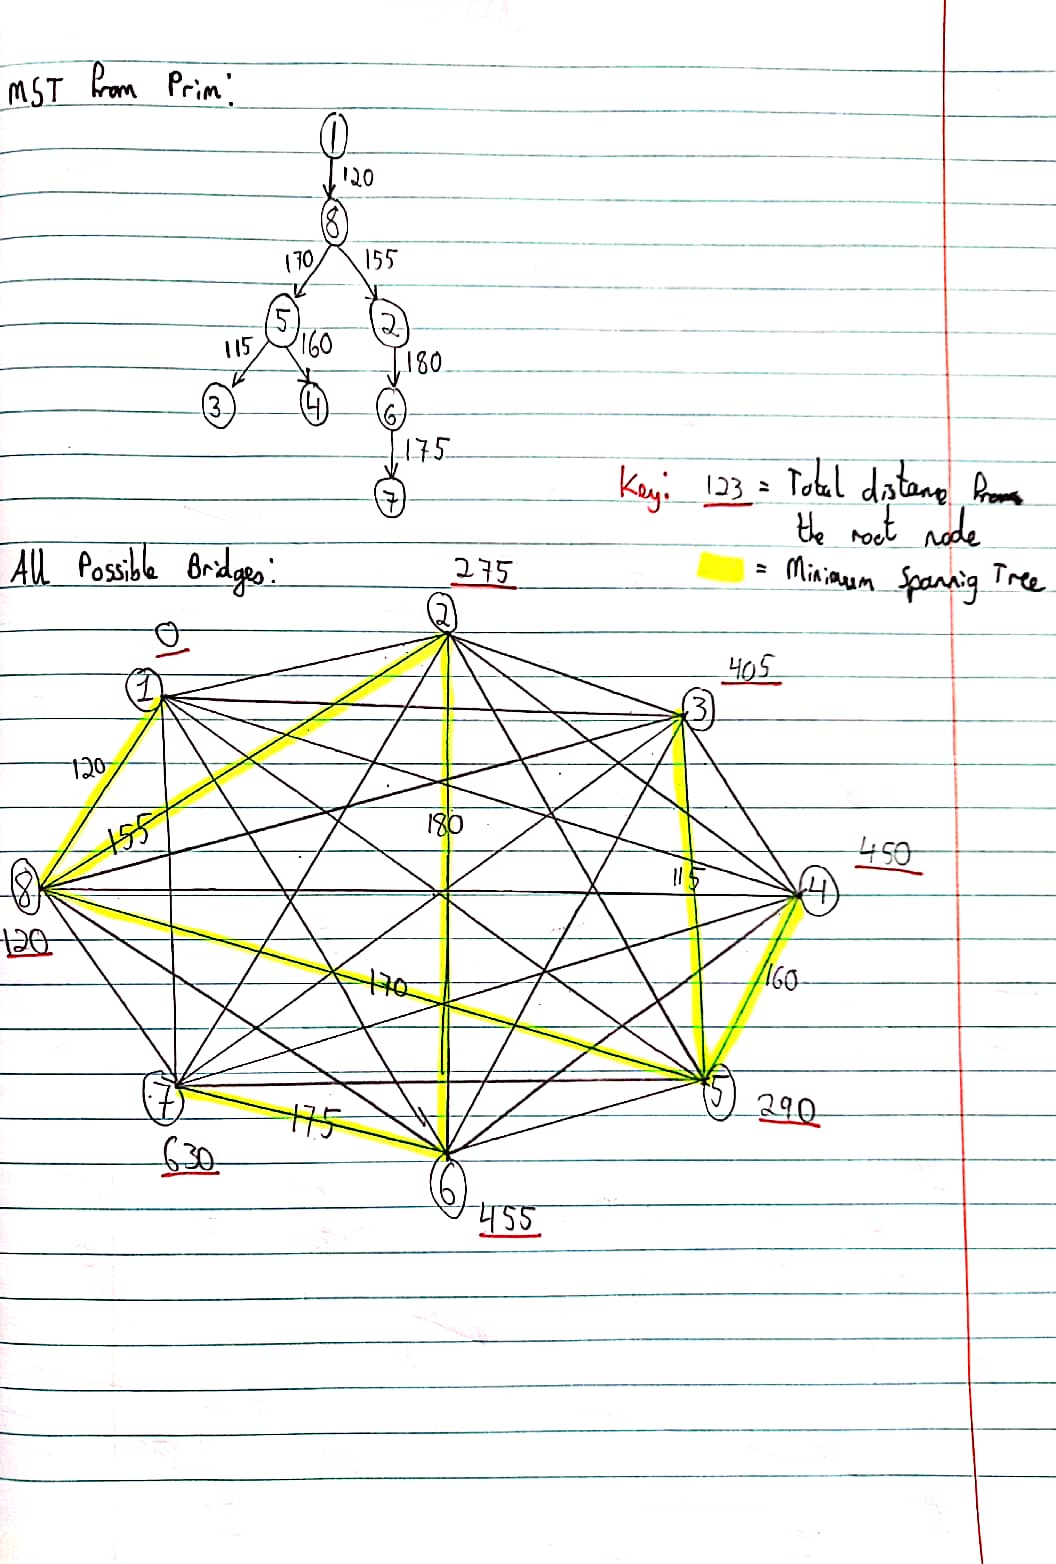 MST From Prim:
1
120
8
170 155
5 2
115 160 180
3 4 6
175
7
Key: 123 = Total distance from
the root node
= Minimum Spannig Tree
All Possible Bridges:
275
2
0
1
405
3
120
155
180
115
450
8
4
120
170
160
7
175
5
290
630
6
455